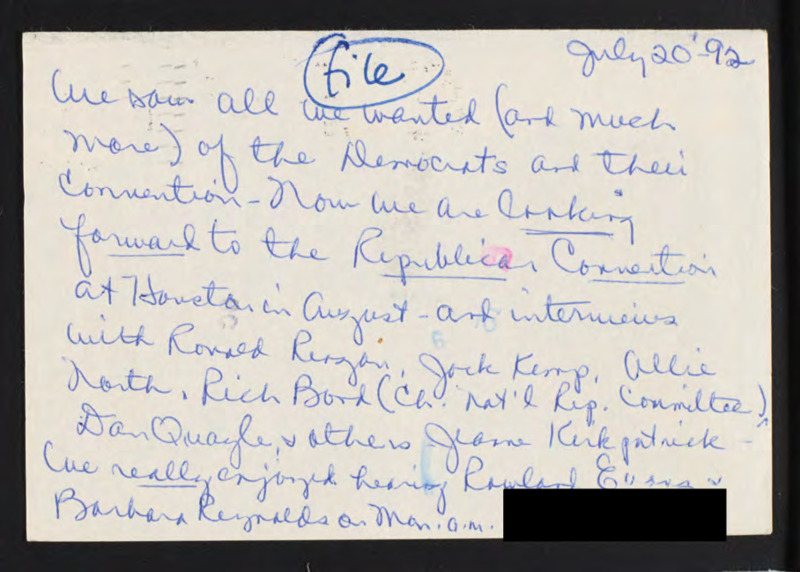 file
July 20 '92
We saw all we wanted (and much
more) of the Democrats and their
Convention - Now we are looking
forward to the Republican Convention
at Houston in August - and interviews
with Ronald Reagan, Jack Kemp, Ollie
North, Rich Bond (Ch. Nat'l Rep. Committee)
Dan Quayle, & others Jeane Kirkpatrick -
We really enjoyed hearing Rowland &
Barbara Reynolds on Mon. a.m.